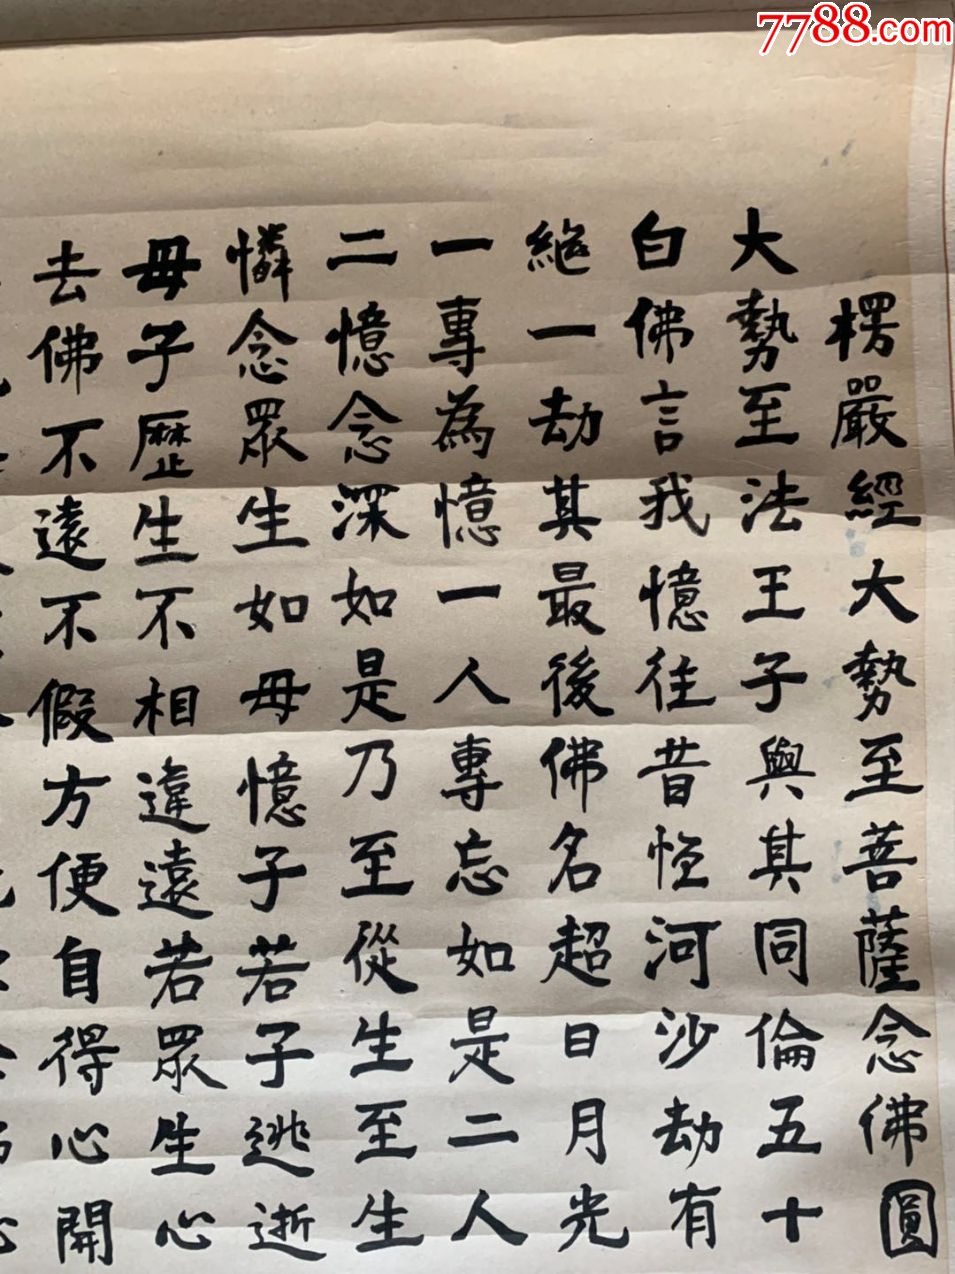 7788.com
楞嚴經大勢至菩薩念佛圓
大勢至法王子與其同倫五十
白佛言我憶往昔恒河沙劫有
絕一劫其最後佛名超日月光
一專為憶一人專忘如是二人
二憶念深如是乃至從生至生
憐念眾生如母憶子若子逃逝
母子歷生不相違遠若眾生心
去佛不遠不假方便自得心開